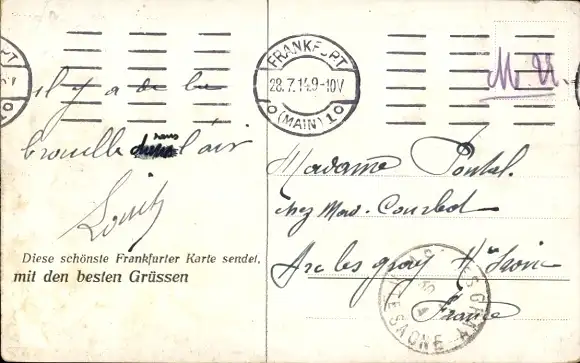 FRANKFURT
28.7.14.9-10V
(MAIN) 10
il y a de la
brouille dans l'air
sans
Diese schönste Frankfurter Karte sendet,
mit den besten Grüssen
Madame Pontal.
chez Mad. Courbet
Arc les gray Hte Saone
France